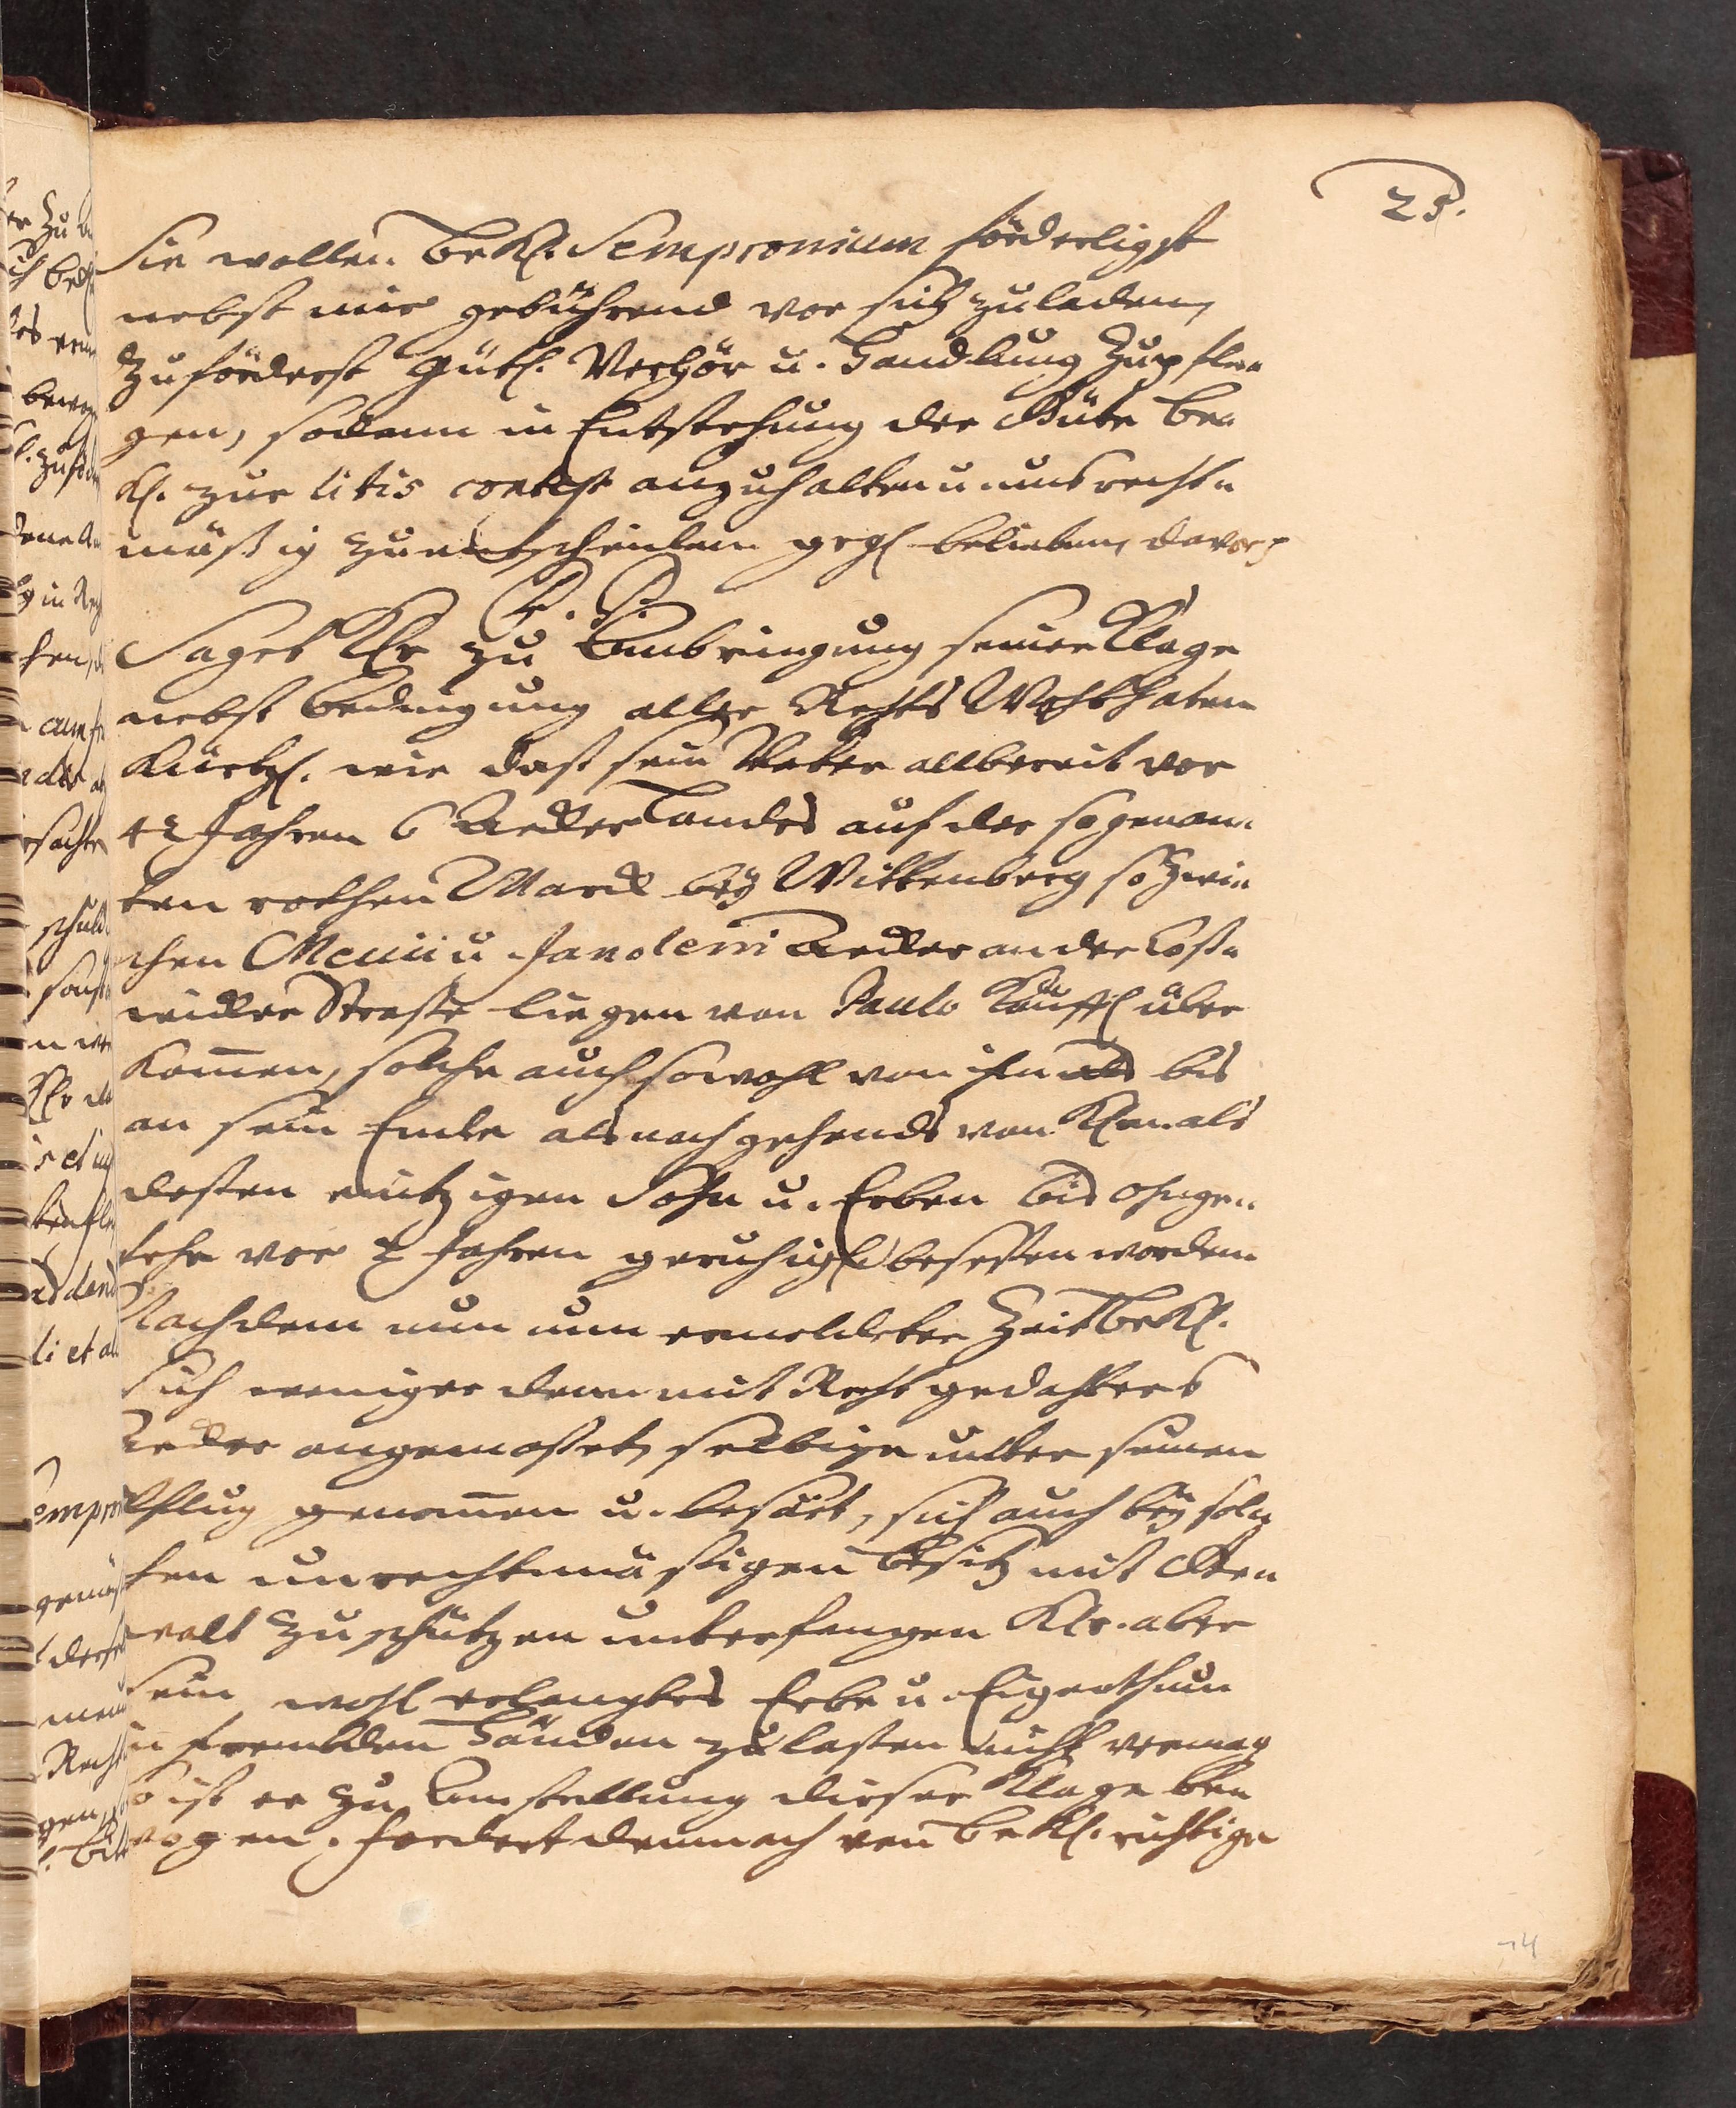 25.
Sie wollen Bekl. Sempronium förderligst
nebst mir gebührend vor sich zuladen,
Zuförderst gütl. Verhör u. Handlung Zupfle-
gen, sodann in Entstehung der Güte Be-
kl. zur litis contest anzuhalten u. uns recht-
mäßig zu entscheiden gegl. belieben, davor p
P. P.
Saget Klr zu Anbringung seiner Klage
nebst Bedingung aller Rechts Wohlthaten
Kürtzl. wie daß sein Vater allbereit vor
42 Jahren 6 Acker Landes auf der sogenan-
ten rothen Marck bey Wittenberg so zwi-
schen Mevii u. Acker an der Coß-
wicker Strasse liegen von Paulo Käuffl. über
kommen, solche auch sowohl von ihm als bis
an sein Ende als nachgehends von Klrn. als
deßen eintzigen Sohn u. Erben bis ohnge-
fehr vor 2 Jahren geruhigl. beseßen worden
Nachdem nun um ermeldeter Zeit Bekl.
sich weniger denn mit Recht gedachter
Acker angemaßet, selbige unter seinen
Pflug genommen u. besäet, sich auch bey sol-
chen unrechtmäßigen Besitz mit Ge-
walt zu schützen unterfangen Klr. aber
sein wohl erlangtes Erbe u. Eigenthum
in frembden Händen zu laßen nicht vermag
So ist er zu Anstellung dieser Klage be-
wogen. fordert demnach von Bekl. richtige
14